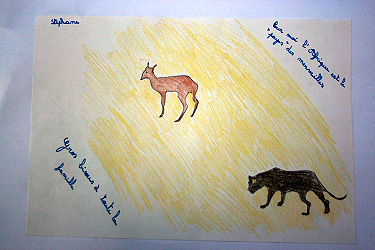 Stéphane
Pour moi l'Afrique est le
"pays" des merveilles
Gros bisous à toute la
famille